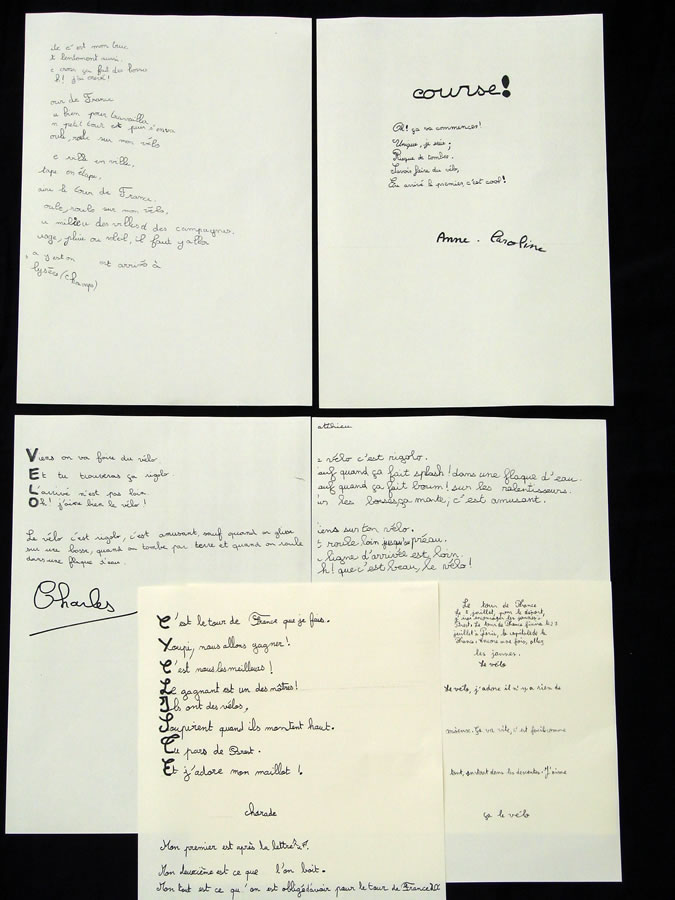 c'est mon truc
t lentement aussi.
ça fait des bosses
h! j'ai croisé!
our de France
bien pour travailler
n petit tour et puis s'en va
oule, roule sur mon vélo
e ville en ville,
tape en étape,
aire le tour de France,
oule, roule sur mon vélo,
u milieu des villes et des campagnes.
uage, pluie ou soleil, il faut y aller
a y'est on est arrivé à
lysées (champs)
course!
Oh! ça va commencer!
Unique, je suis;
Risque de tomber.
Savoir faire du vélo,
Etre arrivé le premier, c'est cool!
Anne-Caroline
Viens on va faire du vélo
Et tu trouveras ça rigolo
L'arrivé n'est pas loin
Oh! j'aime bien le vélo!
Le vélo c'est rigolo, c'est amusant, sauf quand on glisse
sur une bosse, quand on tombe par terre et quand on roule
dans une flaque d'eau.
Charles
atthieu
vélo c'est rigolo.
auf quand ça fait splash! dans une flaque d'eau.
auf quand ça fait boum! sur les ralentisseurs.
ur les bosses ça monte; c'est amusant.
iens sur ton vélo.
t roule loin jusqu'au préau.
ligne d'arrivée est loin.
h! que c'est beau, le vélo!
C'est le tour de France que je fais.
Youpi, nous allons gagner!
C'est nous les meilleurs!
Le gagnant est un des nôtres!
Ils ont des vélos,
Soupirent quand ils montent haut.
Tu pars de Brest.
Et j'adore mon maillot!
charade
Mon premier est après la lettre
Mon deuxième est ce que l'on boit.
Mon tout est ce qu'on est obligé d'avoir pour le tour de France
Le tour de France
Le 5 juillet, pour le départ,
Brest. Le tour de France finira le
juillet à Paris, la capitale de la
France. Encore une fois, allez
les jaunes.
Le vélo
Le vélo, j'adore il n'y a rien de
mieux. Ça va vite, c'est facile comme
tout, surtout dans les descentes. J'aime
ça le vélo